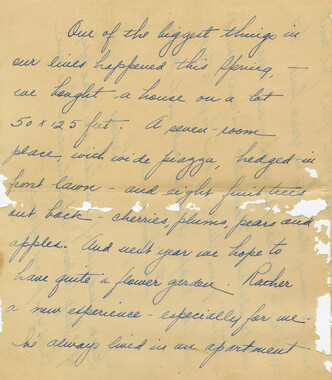 One of the biggest things in
our lives happened this Spring, —
we bought a house on a lot
50 x 125 feet. A seven-room
place, with wide piazza, hedged-in
front lawn - and eight fruit trees
out back - cherries, plums, pears and
apples. And next year we hope to
have quite a flower garden. Rather
a new experience - especially for me -
I've always lived in an apartment